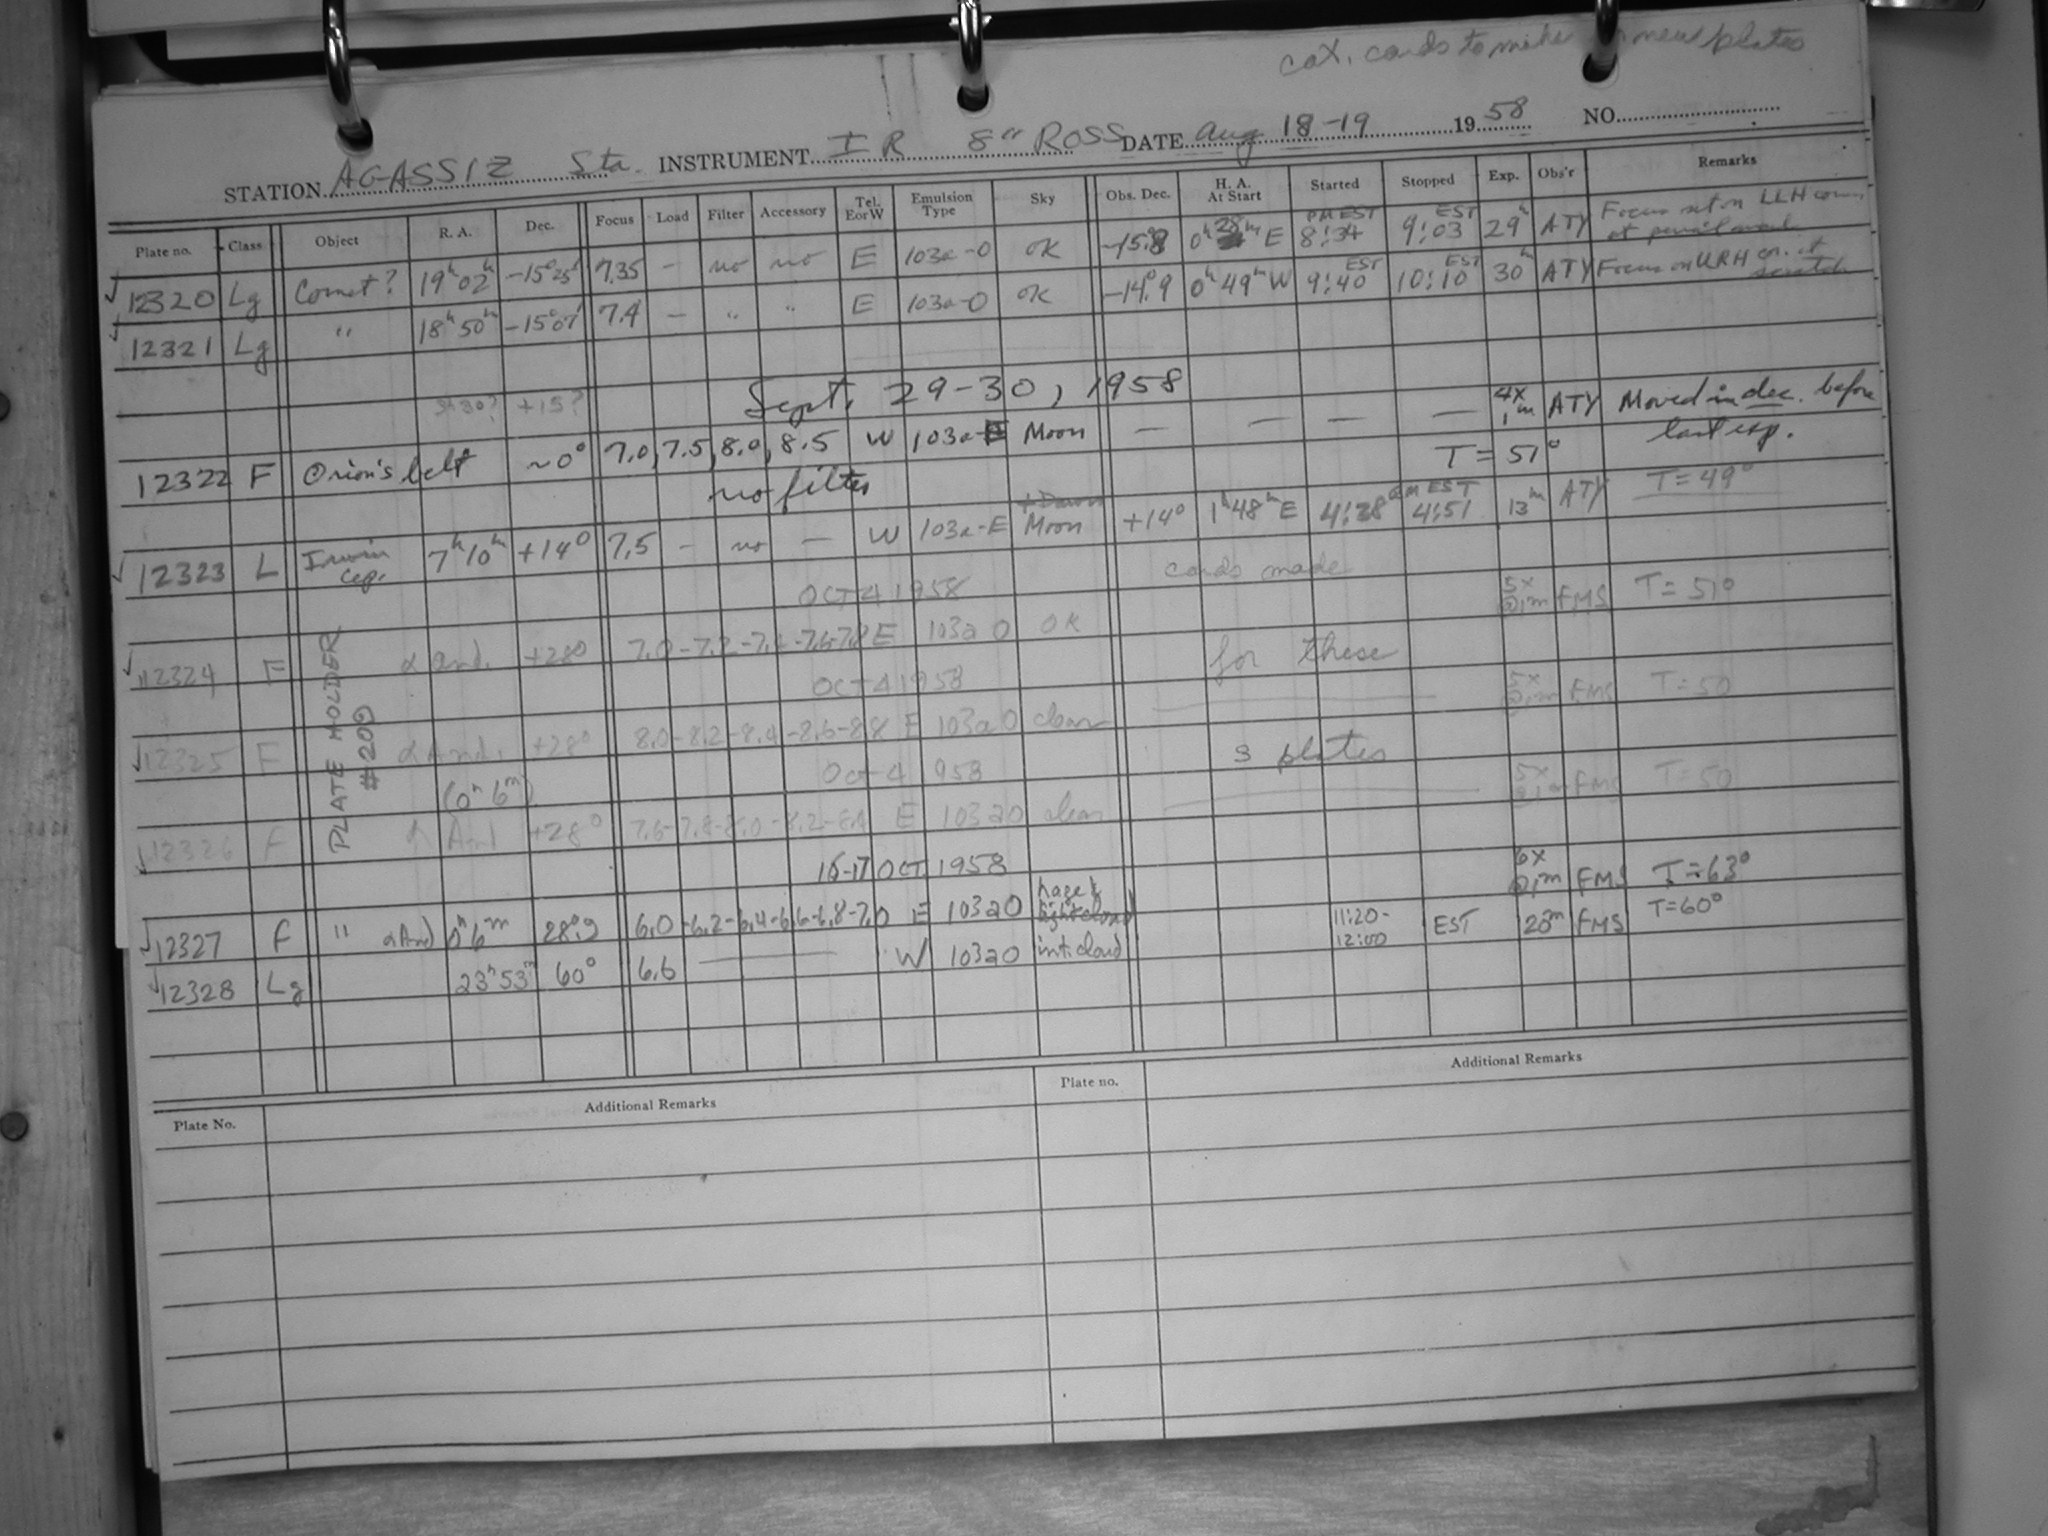 cat. cards to make new plates
STATION AGASSIZ Sta. INSTRUMENT IR 8" ROSS DATE Aug 18-19 1958 NO.
Plate no. Class Object R. A. Dec. Focus Load Filter Accessory Tel. E or W Emulsion Type Sky Obs. Dec. H. A. At Start Started Stopped Exp. Obs'r Remarks
✓ 12320 Lg Comet? 19h 02m -15° 25' 7.35 - no no E 103a-O OK -15.8 0h 28m E 8:34 PM EST 9:03 EST 29m ATY Focus set on LLH corn. at pencil mark
✓ 12321 Lg " 18h 50m -15° 07' 7.4 - " " E 103a-O OK -14.9 0h 49m W 9:40 EST 10:10 EST 30m ATY Focus on URH cor. at scratch
Sept. 29-30, 1958
5h 30? +15?
12322 F Orion's belt ~0° 7.0, 7.5, 8.0, 8.5 W 103a-E Moon — — — — 4x 1m ATY Moved in dec. before last exp.
no filter T = 51°
✓ 12323 L Irwin Cep. 7h 10m +14° 7.5 - no — W 103a-E Moon +14° 1h 48m E 4:38 4:51 AM EST 13m ATY T = 49°
OCT 4 1958 cards made
✓ 12324 F α And. +28° 7.0-7.2-7.4-7.6-7.8 E 103a O OK 5x @1m FMS T = 51°
for these
OCT 4 1958
PLATE HOLDER #209
✓ 12325 F α And. +28° 8.0-8.2-8.4-8.6-8.8 E 103a O clear 5x @1m FMS T = 50
3 plates
Oct 4 1958
(0h 6m)
✓ 12326 F α And +28° 7.6-7.8-8.0-8.2-8.4 E 103a O clear 5x @1m FMS T = 50
16-17 OCT 1958
✓ 12327 F " α And 0h 6m 28°.9 6.0-6.2-6.4-6.6-6.8-7.0 E 103a O haze & light cloud 6x @1m FMS T = 63°
✓ 12328 Lg 23h 53m 60° 6.6 — W 103a O int. cloud 11:20-12:00 EST 28m FMS T = 60°
Plate No. Additional Remarks Plate no. Additional Remarks